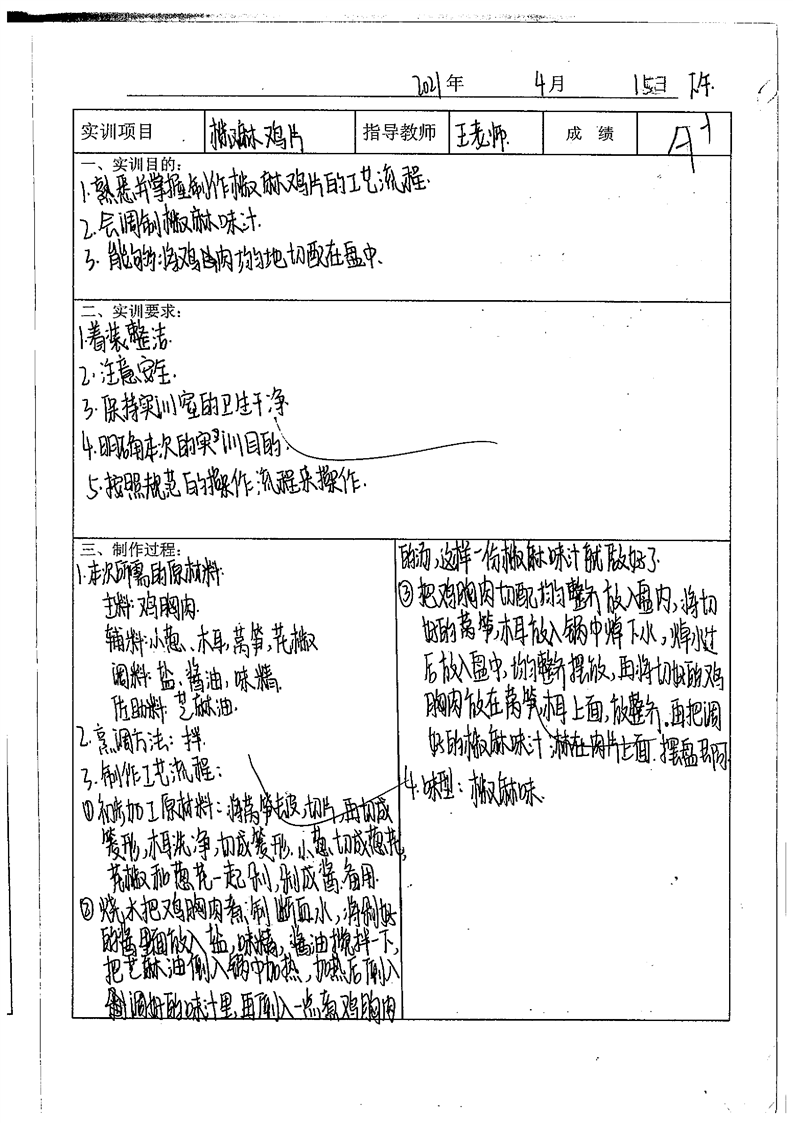 2021年 4月 15日 下午
实训项目 椒麻鸡片 指导教师 王老师 成绩 A+
一、实训目的:
1.熟悉并掌握制作椒麻鸡片的工艺流程.
2.会调制椒麻味汁.
3.能够将鸡肉均匀地切配在盘中.
二、实训要求:
1.着装整洁.
2.注意安全.
3.保持实训室的卫生干净
4.明确本次的实训目的.
5.按照规范的操作流程来操作.
三、制作过程:
1.本次所需的原材料
主料:鸡胸肉.
辅料:小葱、木耳,莴笋,花椒
调料:盐,酱油,味精.
佐助料:芝麻油.
2.烹调方法:拌.
3.制作工艺流程:
①初步加工原材料:将莴笋去皮,切片,再切成
菱形,木耳洗净,切成菱形.小葱切成葱花,
花椒和葱花一起剁,剁成酱备用.
②烧水把鸡胸肉煮制断血水,将剁好
的酱里面放入盐,味精,酱油搅拌一下,
把芝麻油倒入锅中加热,加热后倒入
调好的味汁里,再倒入一点煮鸡胸肉
的汤,这样一份椒麻味汁就做好了.
③把鸡胸肉切配均匀整齐放入盘内,将切
好的莴笋,木耳放入锅中焯下水,焯水过
后放入盘中,均匀整齐摆放,再将切好的鸡
胸肉放在莴笋,木耳上面,放整齐.再把调
好的椒麻味汁淋在肉片上面.摆盘即可.
4.味型:椒麻味.